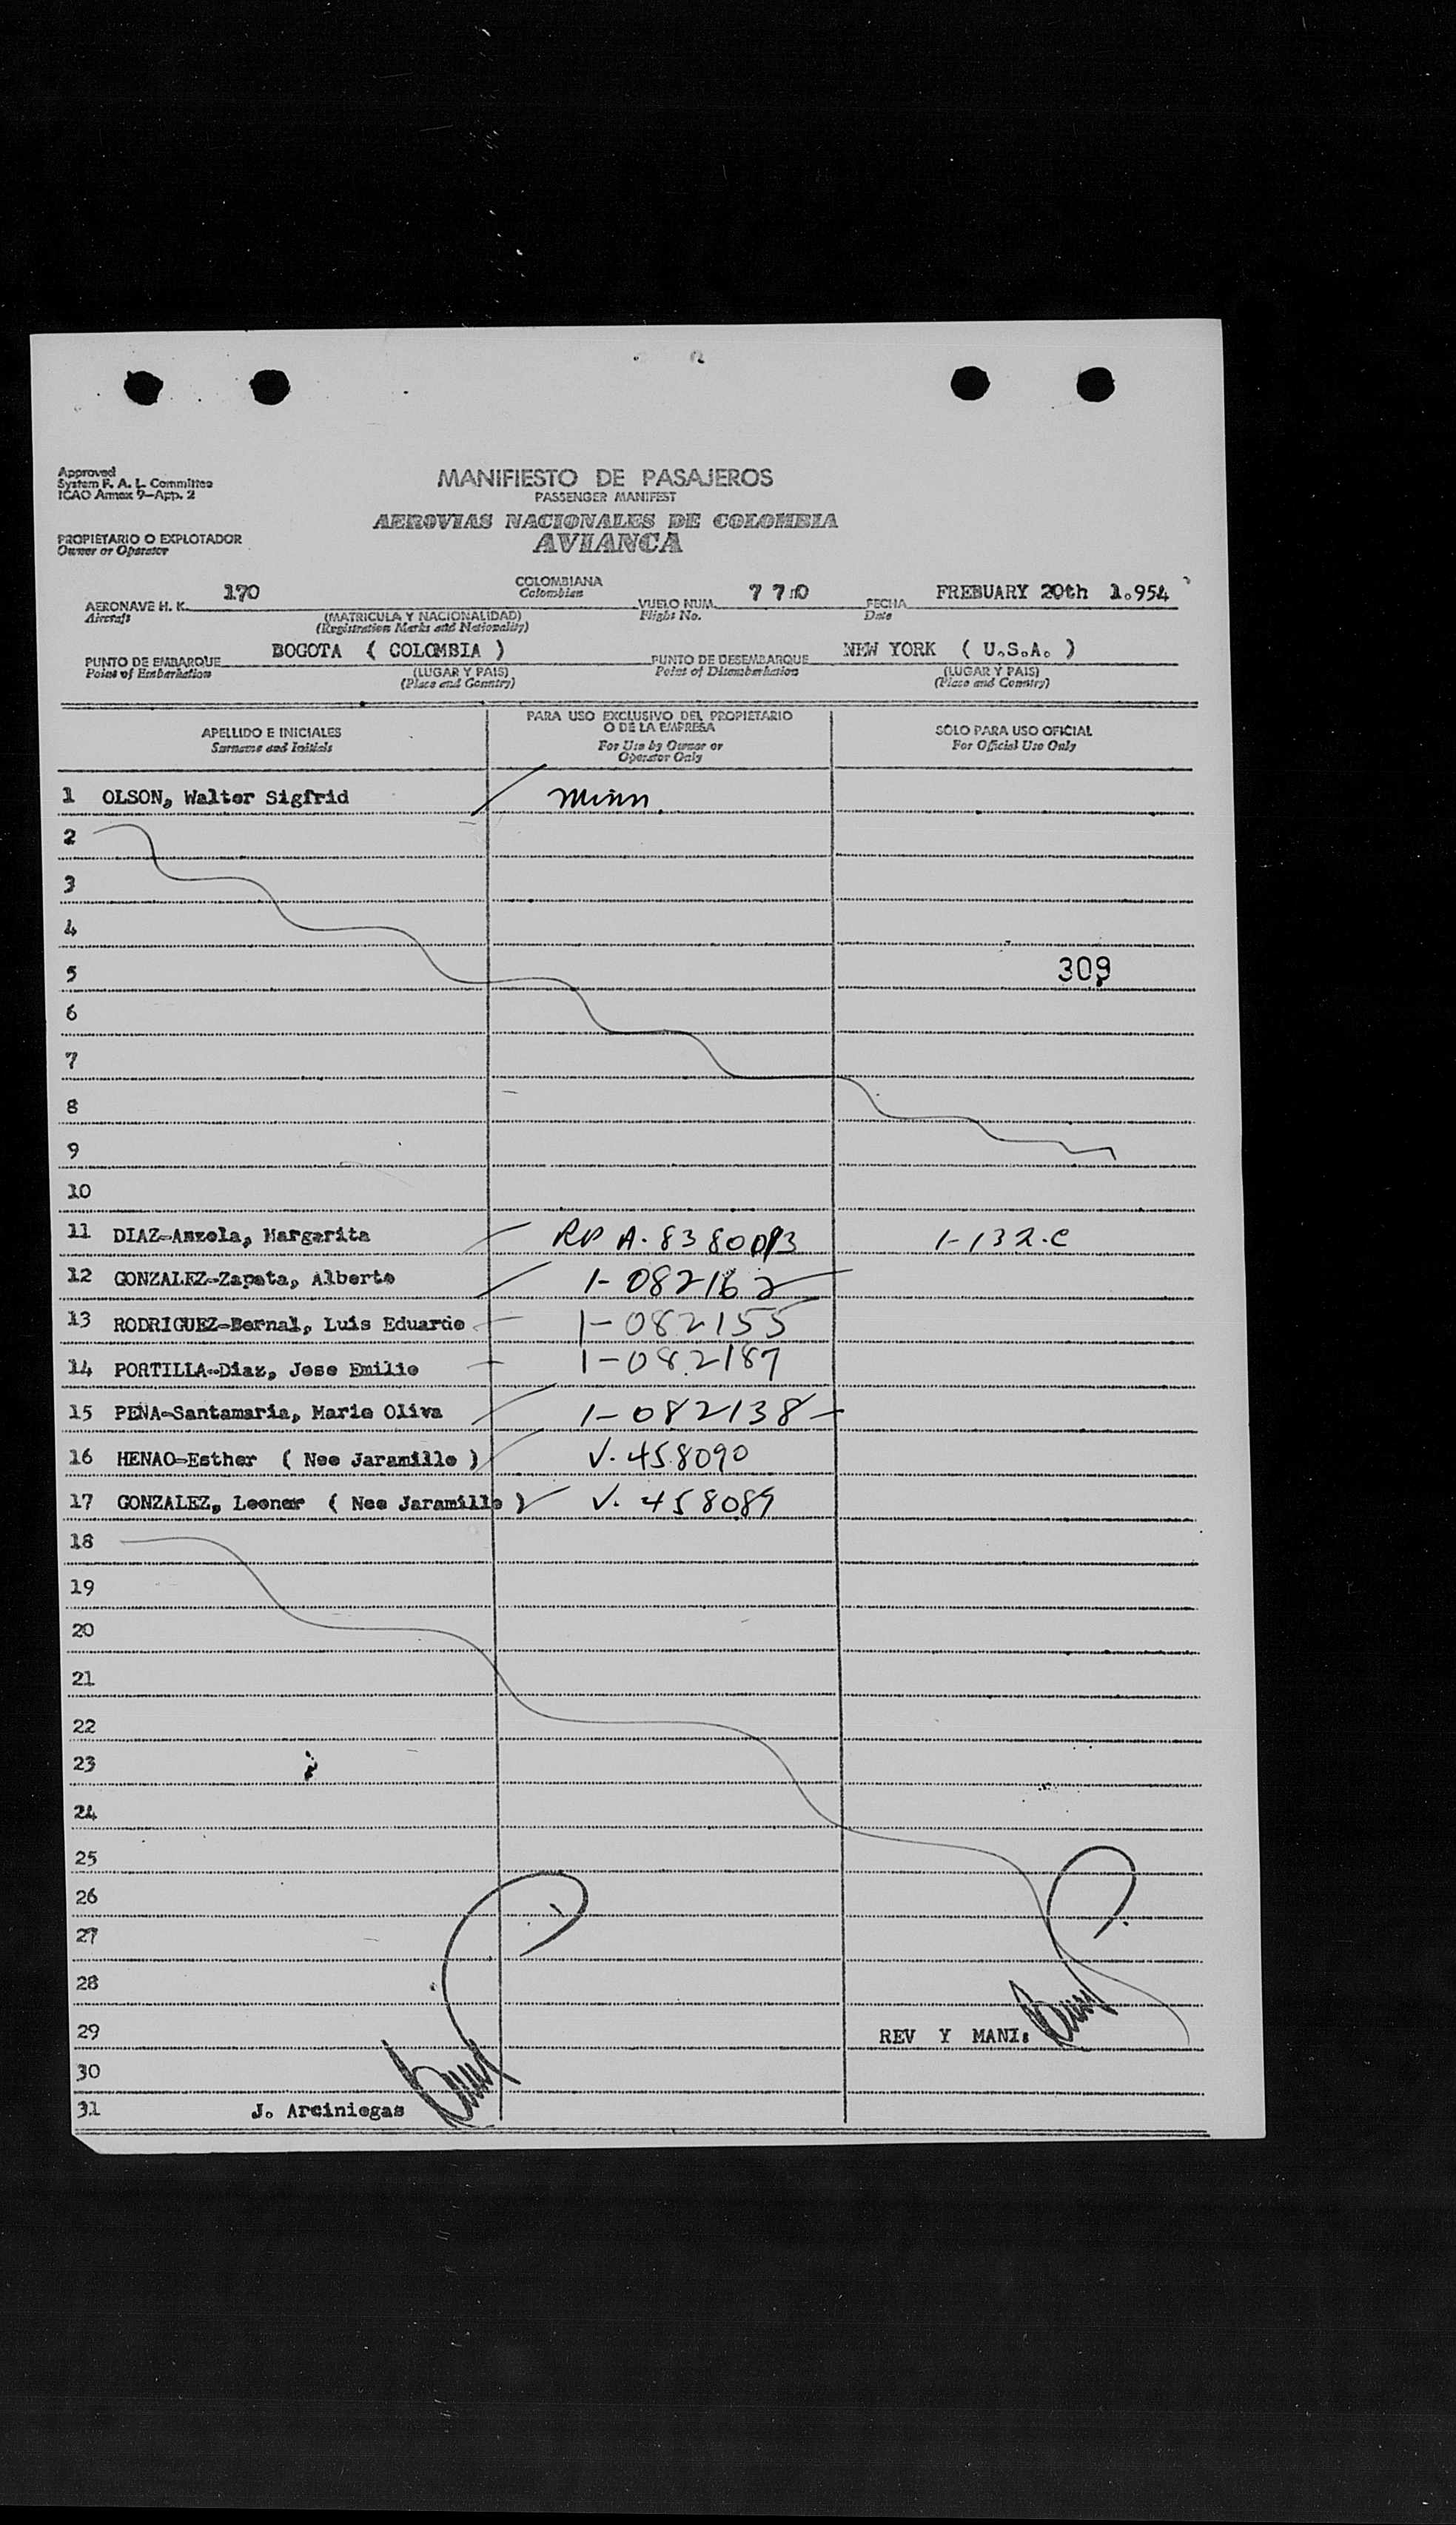 Approved
System F. A. L. Committee
ICAO Annex 9-App. 2
MANIFIESTO DE PASAJEROS
PASSENGER MANIFEST
AEROVIAS NACIONALES DE COLOMBIA
AVIANCA
PROPIETARIO O EXPLOTADOR
Owner or Operator
AERONAVE H. K. 170 COLOMBIANA VUELO NUM. 7 7 0 FECHA FREBUARY 20th 1.954
Aircraft Colombian Flight No. Date
(MATRICULA Y NACIONALIDAD)
(Registration Marks and Nationality)
PUNTO DE EMBARQUE BOGOTA ( COLOMBIA ) PUNTO DE DESEMBARQUE NEW YORK ( U.S.A. )
Point of Embarkation (LUGAR Y PAIS) Point of Disembarkation (LUGAR Y PAIS)
(Place and Country) (Place and Country)
APELLIDO E INICIALES PARA USO EXCLUSIVO DEL PROPIETARIO O DE LA EMPRESA SOLO PARA USO OFICIAL
Surname and Initials For Use by Owner or Operator Only For Official Use Only
1 OLSON, Walter Sigfrid Minn.
2
3
4
5 309
6
7
8
9
10
11 DIAZ-Anzola, Margarita A-8380013 1-132.C
12 GONZALEZ-Zapata, Alberto 1-082162
13 RODRIGUEZ-Bernal, Luis Eduardo 1-082155
14 PORTILLA-Diaz, Jose Emilio 1-082187
15 PEÑA-Santamaria, Maria Oliva 1-082138
16 HENAO-Esther ( Nee Jaramillo ) V. 458090
17 GONZALEZ, Leonor ( Nee Jaramillo ) V. 458089
18
19
20
21
22
23
24
25
26
27
28
29 REV Y MANI:
30
31 J. Arciniegas